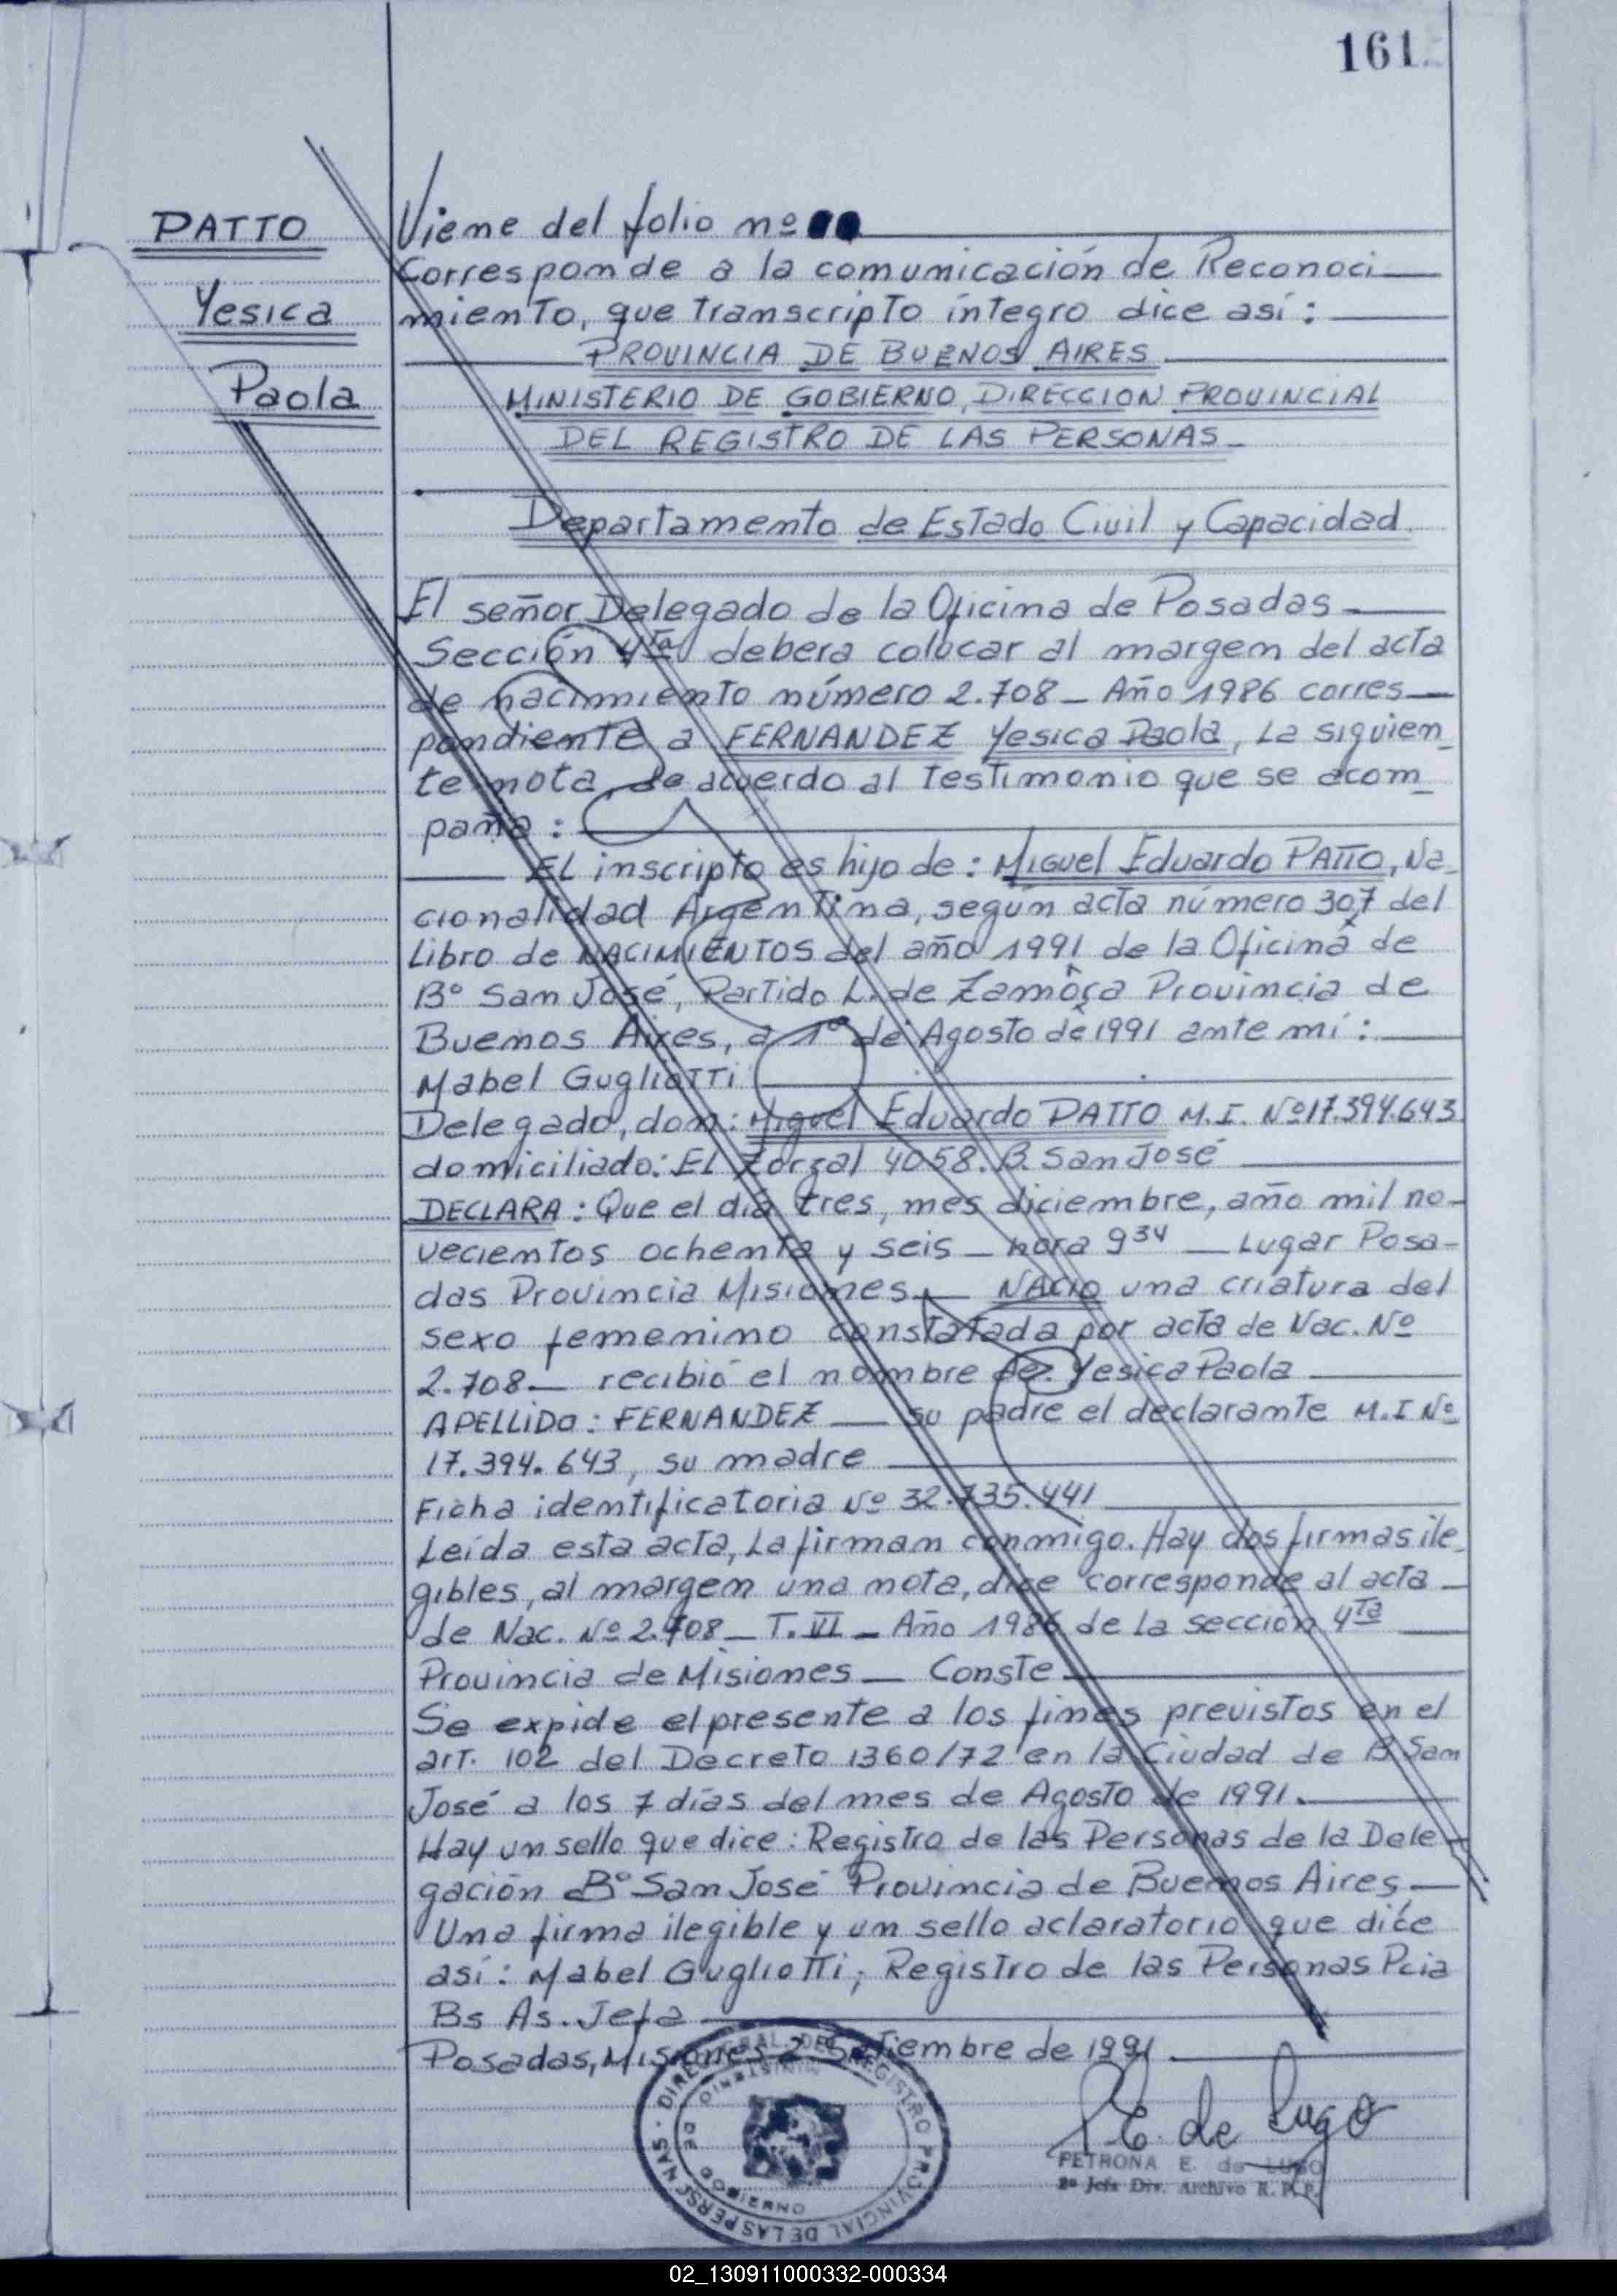 161
PATTO
Yesica
Paola
Viene del folio nº
Corresponde a la comunicación de Reconoci
miento, que transcripto íntegro dice así:
PROVINCIA DE BUENOS AIRES
MINISTERIO DE GOBIERNO, DIRECCION PROVINCIAL
DEL REGISTRO DE LAS PERSONAS
Departamento de Estado Civil y Capacidad
El señor Delegado de la Oficina de Posadas
Sección 4ta debera colocar al margen del acta
de nacimiento número 2.708 - Año 1986 corres
pondiente a FERNANDEZ Yesica Paola, La siguien
te nota, de acuerdo al testimonio que se acom
paña:
EL inscripto es hijo de: Miguel Eduardo PATTO, Na
cionalidad Argentina, según acta número 307 del
Libro de NACIMIENTOS del año 1991 de la Oficina de
Bº San José, Partido L. de Zamora Provincia de
Buenos Aires, a 1º de Agosto de 1991 ante mí:
Mabel Gugliotti
Delegado, don: Miguel Eduardo PATTO M.I. Nº 17.394.643
domiciliado: El Zorzal 4058. B. San José
DECLARA: Que el día tres, mes diciembre, año mil no-
vecientos ochenta y seis - hora 9 34 - Lugar Posa-
das Provincia Misiones - NACIO una criatura del
sexo femenino constatada por acta de Nac. Nº
2.708 - recibió el nombre de: Yesica Paola
APELLIDO: FERNANDEZ - su padre el declarante M.I Nº
17.394.643, su madre
Ficha identificatoria Nº 32.735.441
Leída esta acta, La firman conmigo. Hay dos firmas ile
gibles, al margen una nota, dice corresponde al acta
de Nac. Nº 2.708 - T. VI - Año 1986 de la sección 4ta
Provincia de Misiones - Conste
Se expide el presente a los fines previstos en el
art. 102 del Decreto 1360/72 en la Ciudad de B San
José a los 7 días del mes de Agosto de 1991.
Hay un sello que dice: Registro de las Personas de la Dele-
gación Bº San José Provincia de Buenos Aires
Una firma ilegible y un sello aclaratorio que dice
así: Mabel Gugliotti, Registro de las Personas Pcia
Bs As. Jefa
Posadas, Misiones 2 Setiembre de 1991
DIREC. GRAL. DEL REGISTRO PROVINCIAL DE LAS PERSONAS
MINISTERIO DE GOBIERNO
P.E. de Lugo
PETRONA E. de LUGO
2º Jefa Div. Archivo R. P. P.
02_130911000332-000334